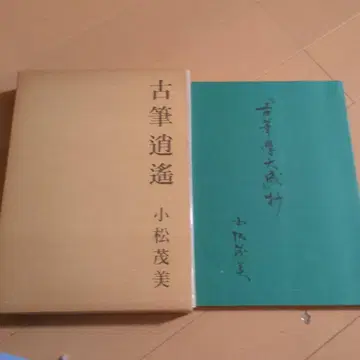 古筆逍遙
小松茂美
古筆學大成抄
小松茂美